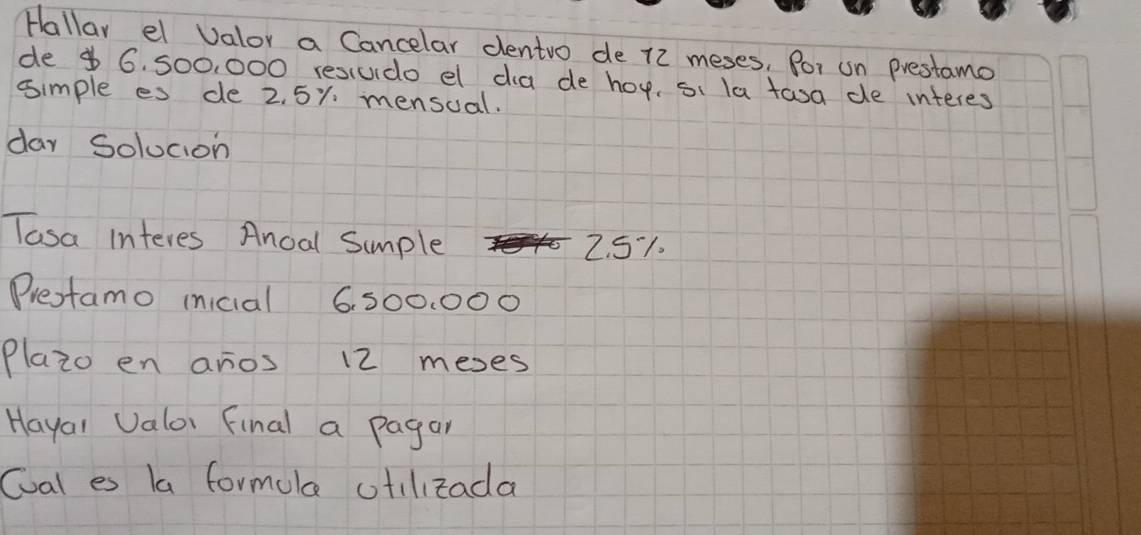 Hallar el Valor a Cancelar dentro de 12 meses, Por un prestamo
de $ 6.500.000 resivido el dia de hoy. si la tasa de interes
simple es de 2,5% mensual.
dar Solucion
Tasa interes Anoal Simple 2.5%
Prestamo inicial 6.500.000
Plazo en años 12 meses
Hayar Valor final a pagar
Cual es la formula utilizada